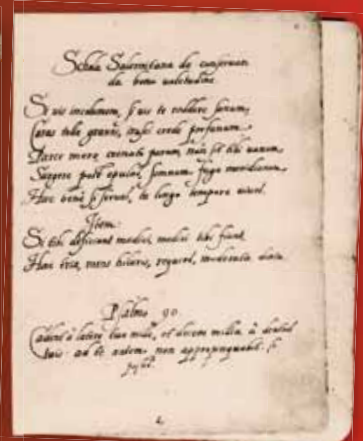 Schola Salernitana de conseruan
da bona ualetudine
Si vis incolumem, si uis te reddere sanum,
Curas tolle graues, irasci crede profanum.
Parce mero, cœnato parum, non sit tibi uanum
Surgere post epulas, somnum fuge meridianum,
Hæc bene si serues, tu longo tempore uiues.
Item.
Si tibi deficiant medici, medici tibi fiant
Hæc tria, mens hilaris, requies, moderata diæta.
Psalmo 90
Cadent à latere tuo mille, et decem millia à dextris
tuis: ad te autem non appropinquabit.